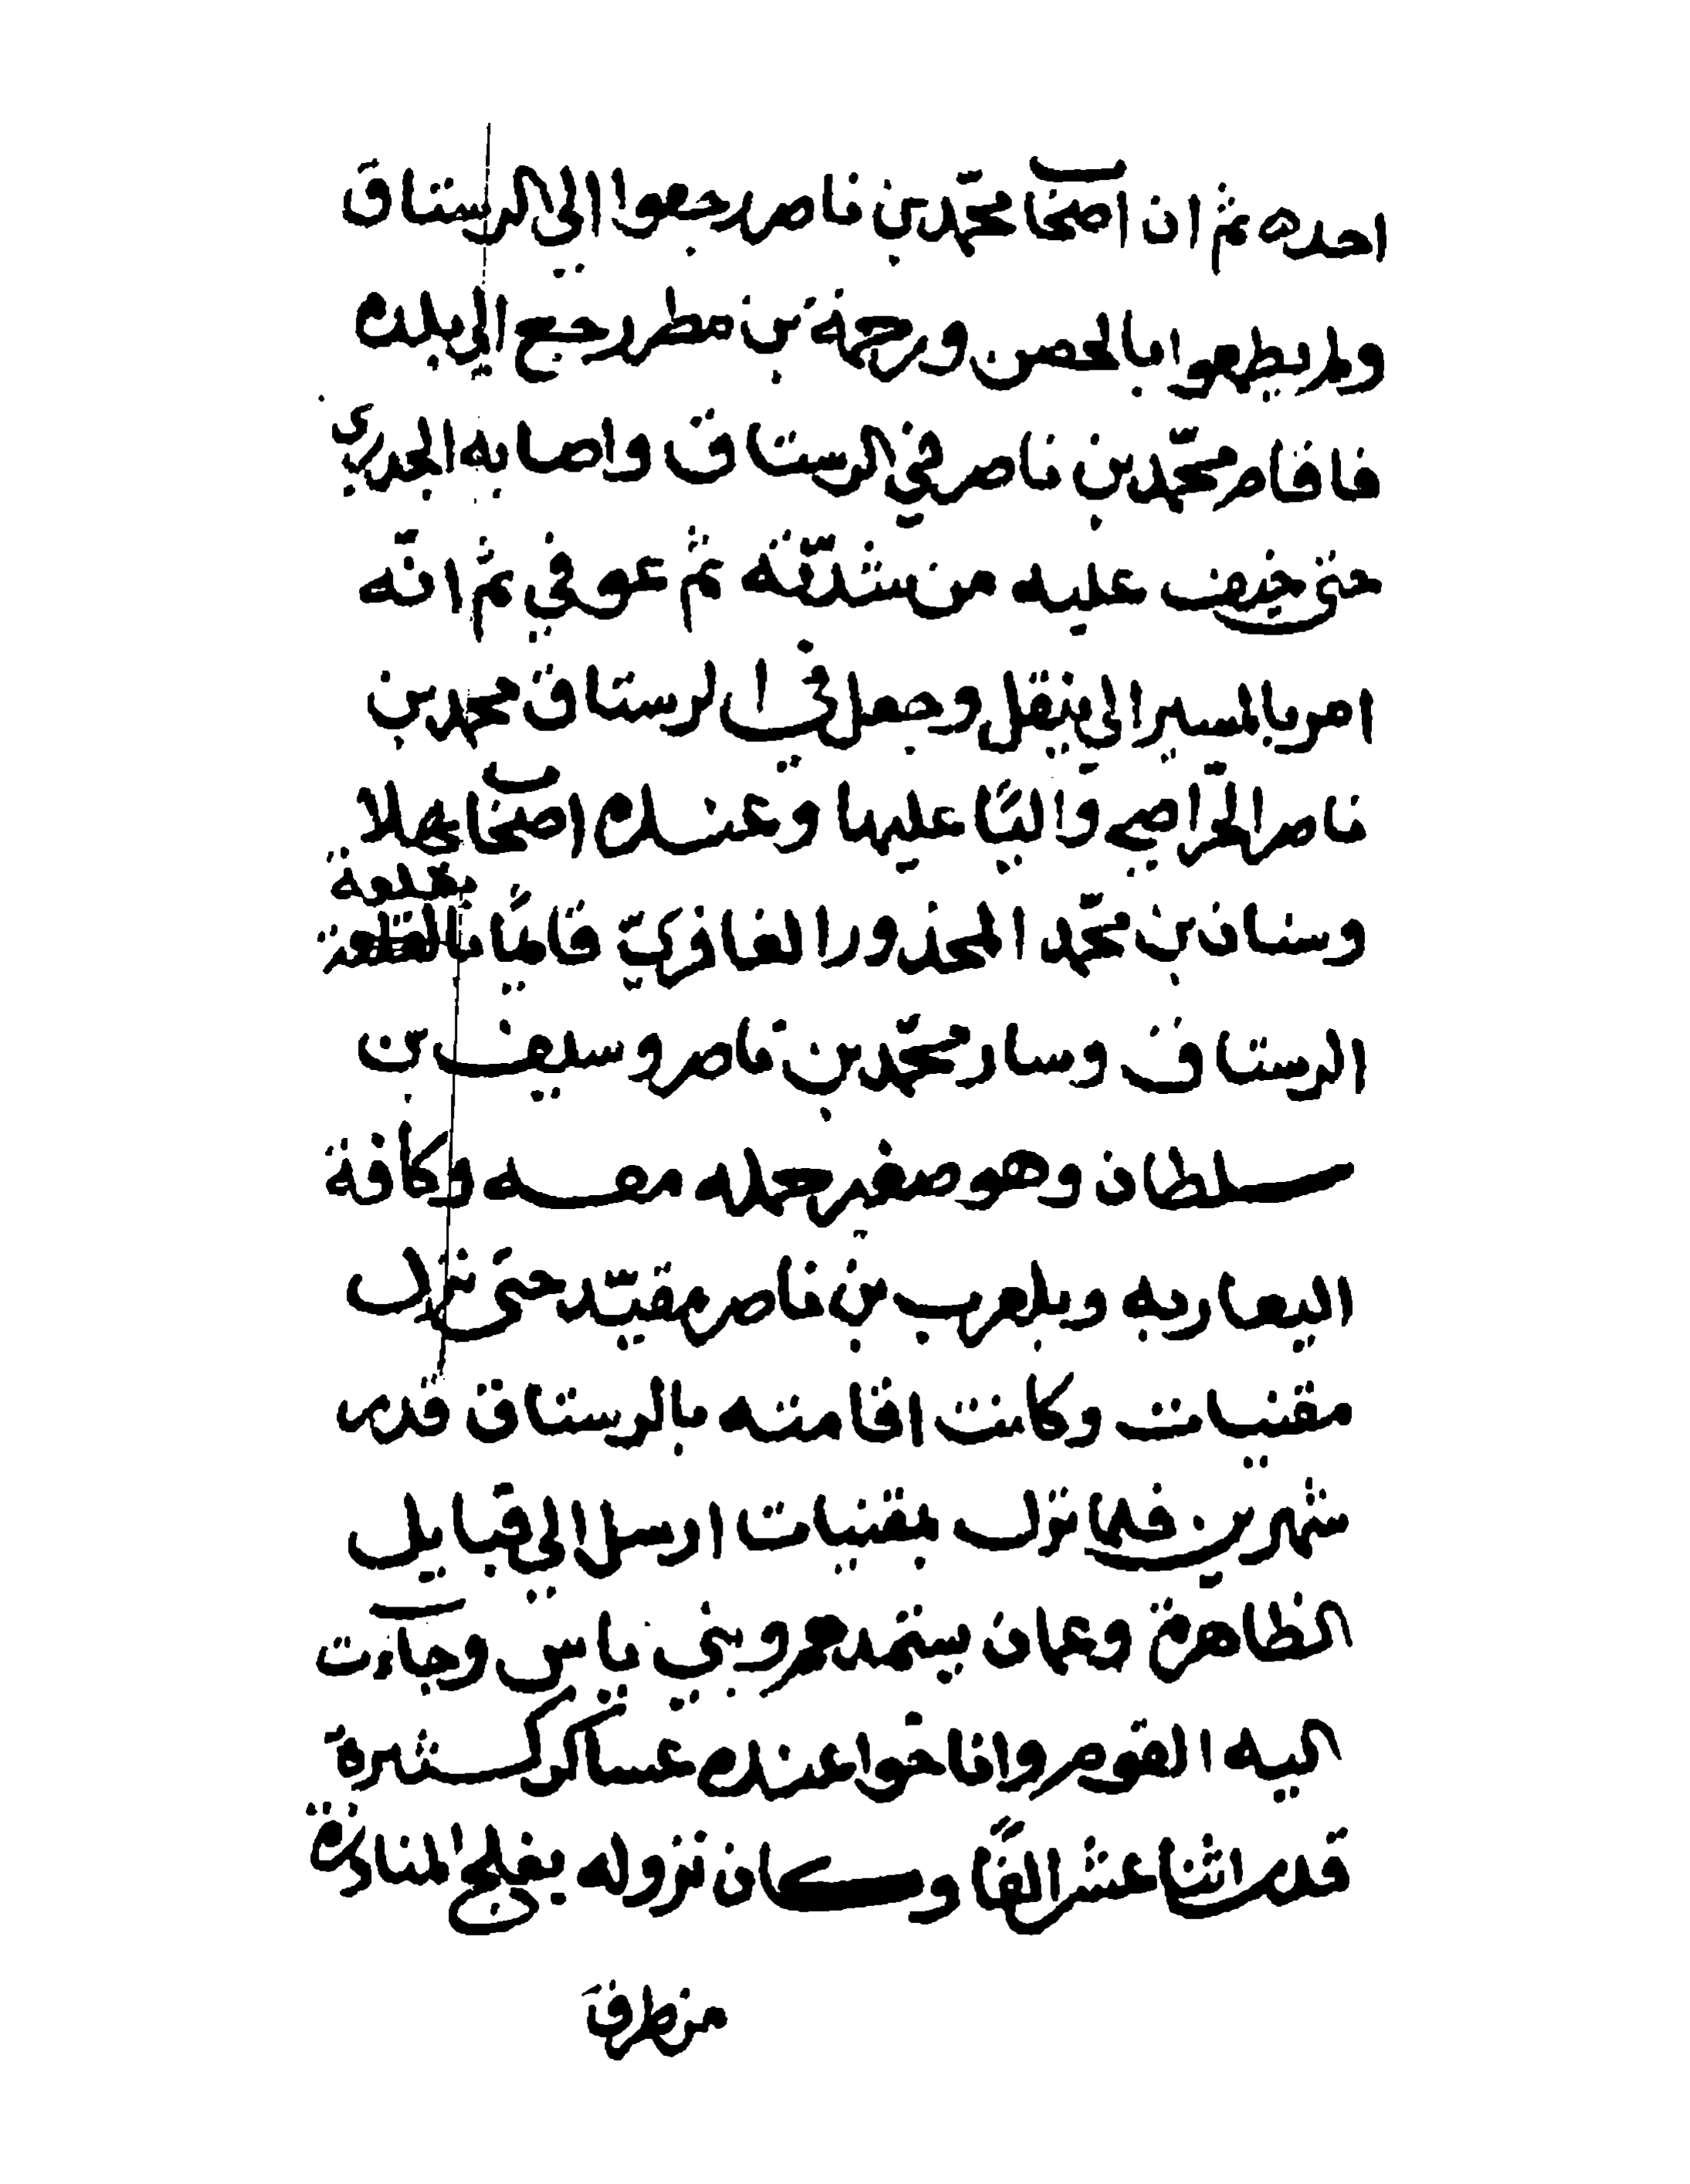 احده ثم ان اصحاب محمّد بن ناصر رجعوا الي الرستاق
ولم يظفروا بالحصن ورحمة بن مطر رجع الي بلده
فاقام محمّد بن ناصر في الرستاق واصابه الجدري
حتى خيف عليه من شدّته ثم عوفي ثم انّه
امر بالمسير الي ينقل وجعل في الرستاق محمد بن
ناصر الحرّاصي واليًا عليها وعنده اصحاب بهلا
وسنان بن محمّد المحذور الغافريّ قايمًا بقلعة
الرستاق وسار محمّد بن ناصر وسيف بن
سلطان وهو صغير حمله معه وكافة
اليعاربه وبلعرب بن ناصر مقيّد حتى نزل
مقنيات وكانت اقامته بالرستاق قدر
شهرين فلما نزل بمقنيات ارسل الي قبايل
الظاهرة وعمان يستمدهم وبني ياس وجاءت
اليه القوم واناخوا عنده عساكر كثيرة
قدر اثنا عشر الفًا وكان نزوله بفلج المناذرة
من طرق